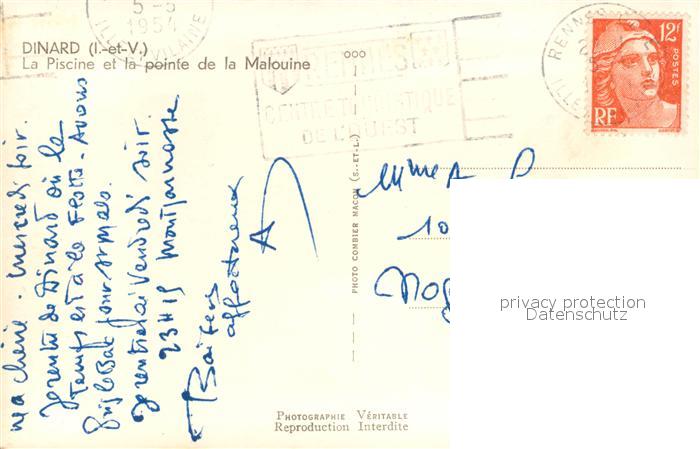 DINARD (I.-et-V.)
La Piscine et la pointe de la Malouine
5-5
1954
ILLE-ET-VILAINE
RENNES
CENTRE TOURISTIQUE
DE L'OUEST
RENNES
12F
POSTES
RF
ma chérie. mercredi soir.
Je rentre de Dinard où le
temps est à la Avons
pris le Bac pour St Malo.
Je rentrerai Vendredi soir.
23H15 Montparnasse
Baisers
affectueux
A
Mme A
10
Nog
PHOTO COMBIER MACON (S.-ET-L.)
PHOTOGRAPHIE VÉRITABLE
Reproduction Interdite
privacy protection
Datenschutz